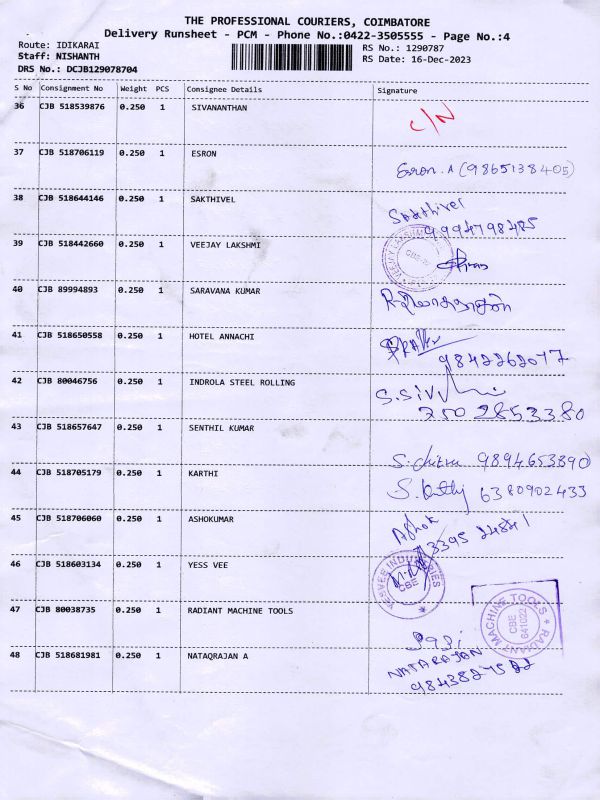 THE PROFESSIONAL COURIERS, COIMBATORE
Delivery Runsheet - PCM - Phone No.:0422-3505555 - Page No.:4
Route: IDIKARAI
RS No.: 1290787
Staff: NISHANTH
RS Date: 16-Dec-2023
DRS No.: DCJB129078704
S No Consignment No Weight PCS Consignee Details Signature
36 CJB 518539876 0.250 1 SIVANANTHAN C/N
37 CJB 518706119 0.250 1 ESRON Esron. A (9865138405)
38 CJB 518644146 0.250 1 SAKTHIVEL Sakthivel
9994798485
39 CJB 518442660 0.250 1 VEEJAY LAKSHMI
40 CJB 89994893 0.250 1 SARAVANA KUMAR
41 CJB 518650558 0.250 1 HOTEL ANNACHI
9842262077
42 CJB 80046756 0.250 1 INDROLA STEEL ROLLING
7502853380
43 CJB 518657647 0.250 1 SENTHIL KUMAR S. Chitra 9894653390
44 CJB 518705179 0.250 1 KARTHI 6380902433
45 CJB 518706060 0.250 1 ASHOKUMAR Ashok
46 CJB 518603134 0.250 1 YESS VEE
YESVEE INDUSTRIES
CBE
47 CJB 80038735 0.250 1 RADIANT MACHINE TOOLS
RADIANT MACHINE TOOLS
CBE
641022
48 CJB 518681981 0.250 1 NATAQRAJAN A NATARAJAN